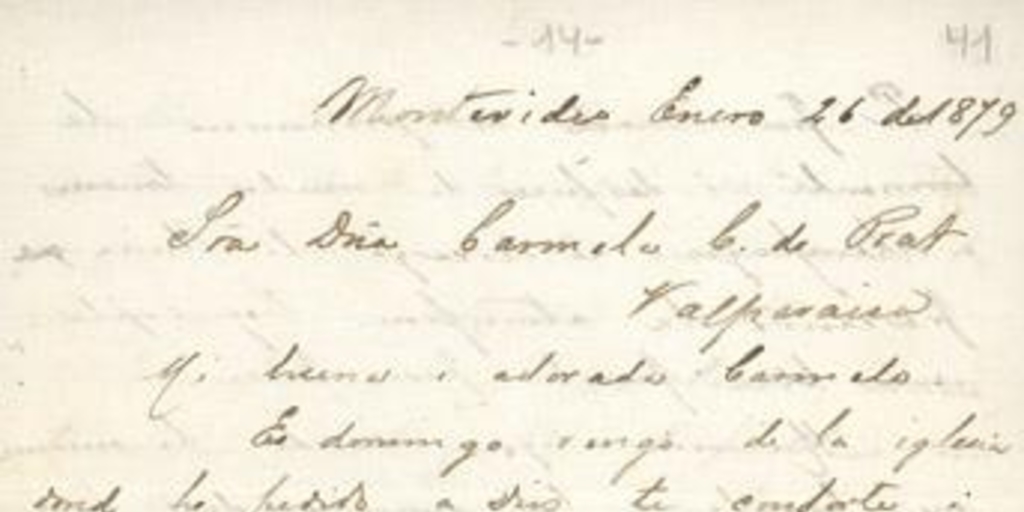 -14- 41
Montevideo Enero 26 de 1879
Sra Dña Carmela C. de Prat
Valparaiso
Mi buena i adorada Carmela
Es domingo, vengo de la iglesia
donde he pedido a Dios te conforte i